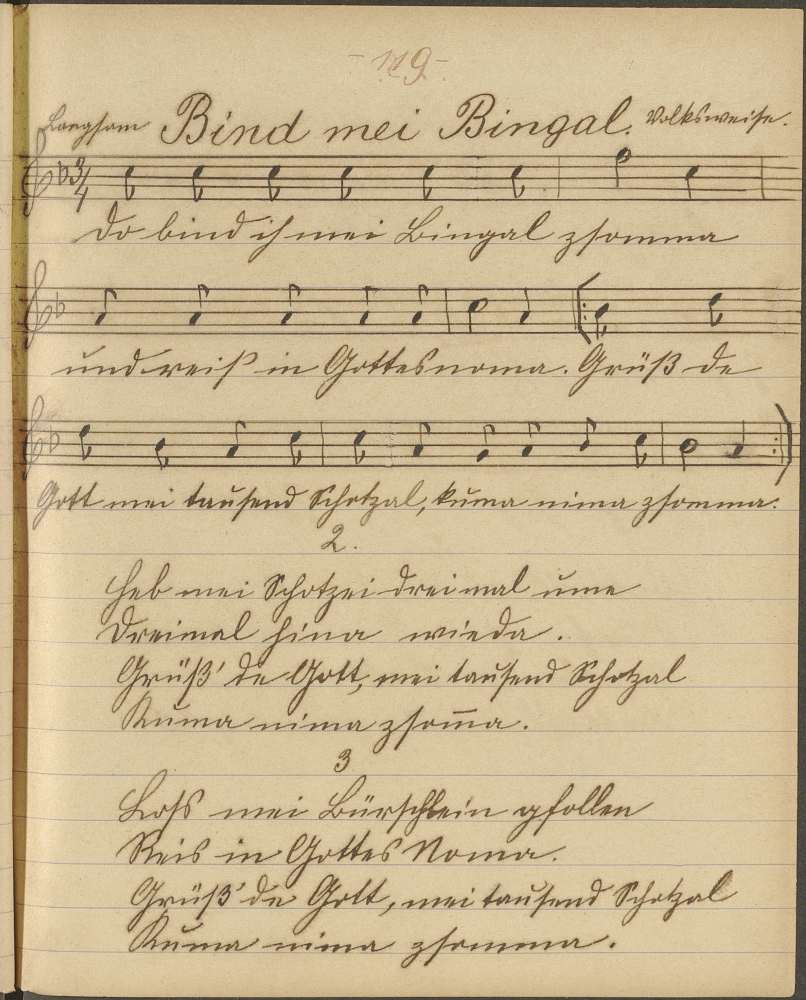 - 119 -
Langsam Bind mei Bingal. Volksweise.
3/4
Do bind ih mei Bingal zsomma
und reis in Gottesnoma. Grüß de
Gott mei tausend Schotzal, kuma nima zsomma.
2.
Heb mei Schotzei dreimal ume
Dreimal hina wieda.
Grüß' de Gott, mei tausend Schotzal
Kuma nima zsom̄a.
3
Loss mei Bürschlein gfollen
Reis in Gottes Noma.
Grüß' de Gott, mei tausend Schotzal
Kuma nima zsomma.